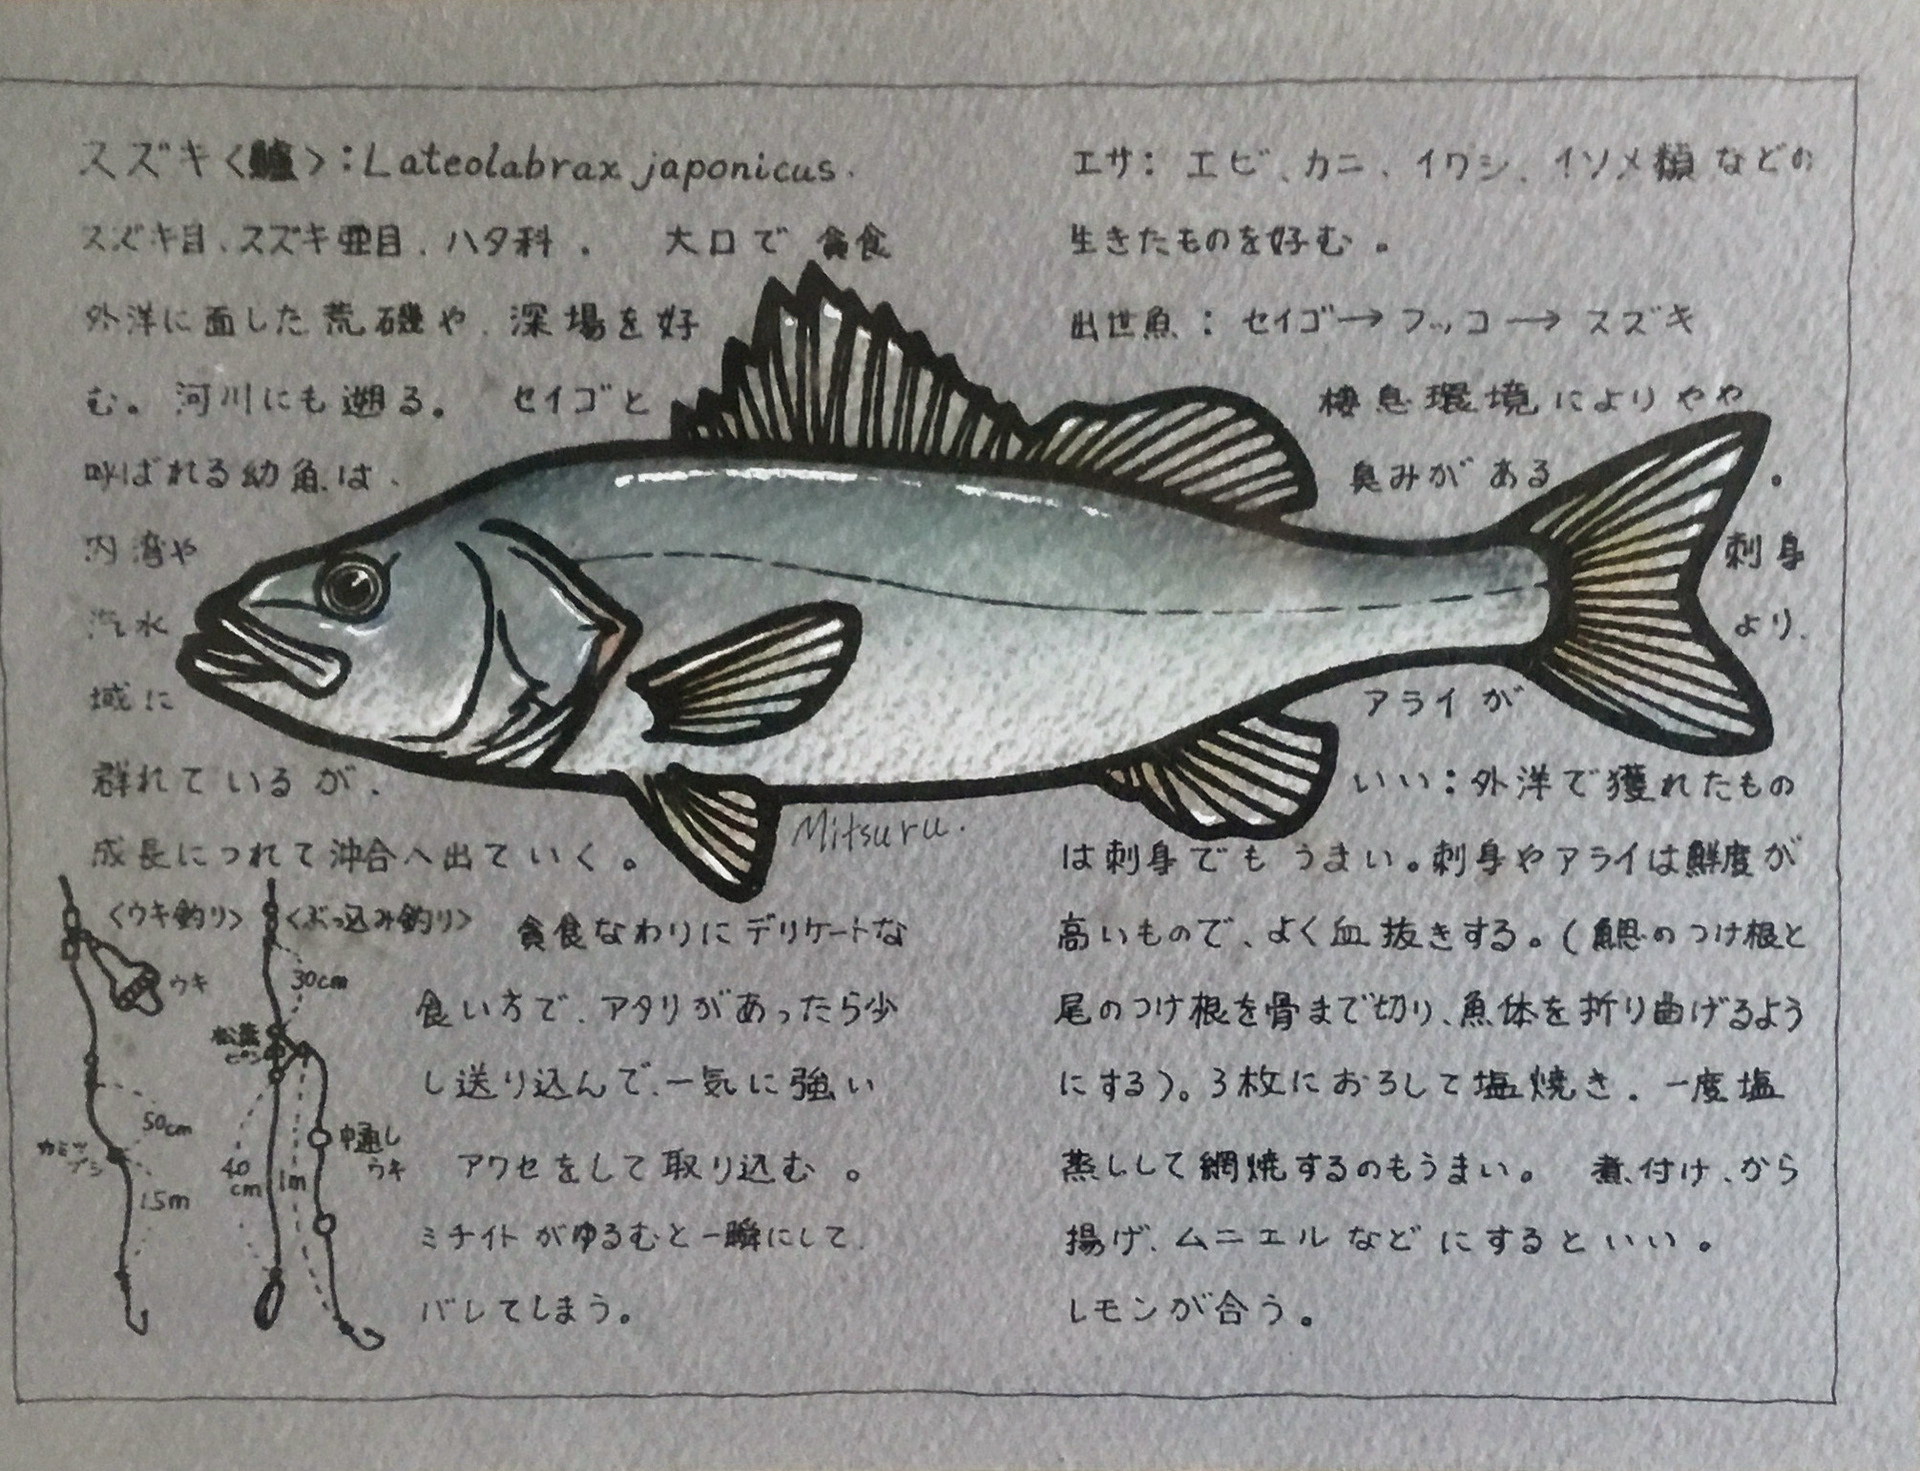 スズキ〈鱸〉:Lateolabrax japonicus.
スズキ目、スズキ亜目、ハタ科。 大口で貪食
外洋に面した荒磯や、深場を好
む。河川にも遡る。 セイゴと
呼ばれる幼魚は、
内湾や
汽水
域に
群れているが、
成長につれて沖合へ出ていく。
〈ウキ釣り〉
ウキ
50cm
カミツブシ
1.5m
〈ぶっ込み釣り〉
30cm
松葉
ピン
中通し
ウキ
40
cm
1m
貪食なわりにデリケートな
食い方で、アタリがあったら少
し送り込んで、一気に強い
アワセをして取り込む。
ミチイトがゆるむと一瞬にして、
バレてしまう。
Mitsuru.
エサ: エビ、カニ、イワシ、イソメ類などの
生きたものを好む。
出世魚:セイゴ→フッコ→スズキ
棲息環境によりやや
臭みがある。
刺身
より、
アライが
いい:外洋で獲れたもの
は刺身でもうまい。刺身やアライは鮮度が
高いもので、よく血抜きする。(鰓のつけ根と
尾のつけ根を骨まで切り、魚体を折り曲げるよう
にする)。3枚におろして塩焼き、一度塩
蒸ししして網焼するのもうまい。 煮付け、から
揚げ、ムニエルなどにするといい。
レモンが合う。